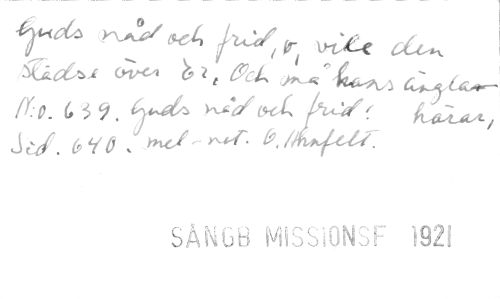 Guds nåd och frid, o, vile den
städse över Er, Och må hans ängla-
N:o. 639. Guds nåd och frid! härar,
Sid. 640. mel-not. O. Ahnfelt.
SÅNGB MISSIONSF 1921